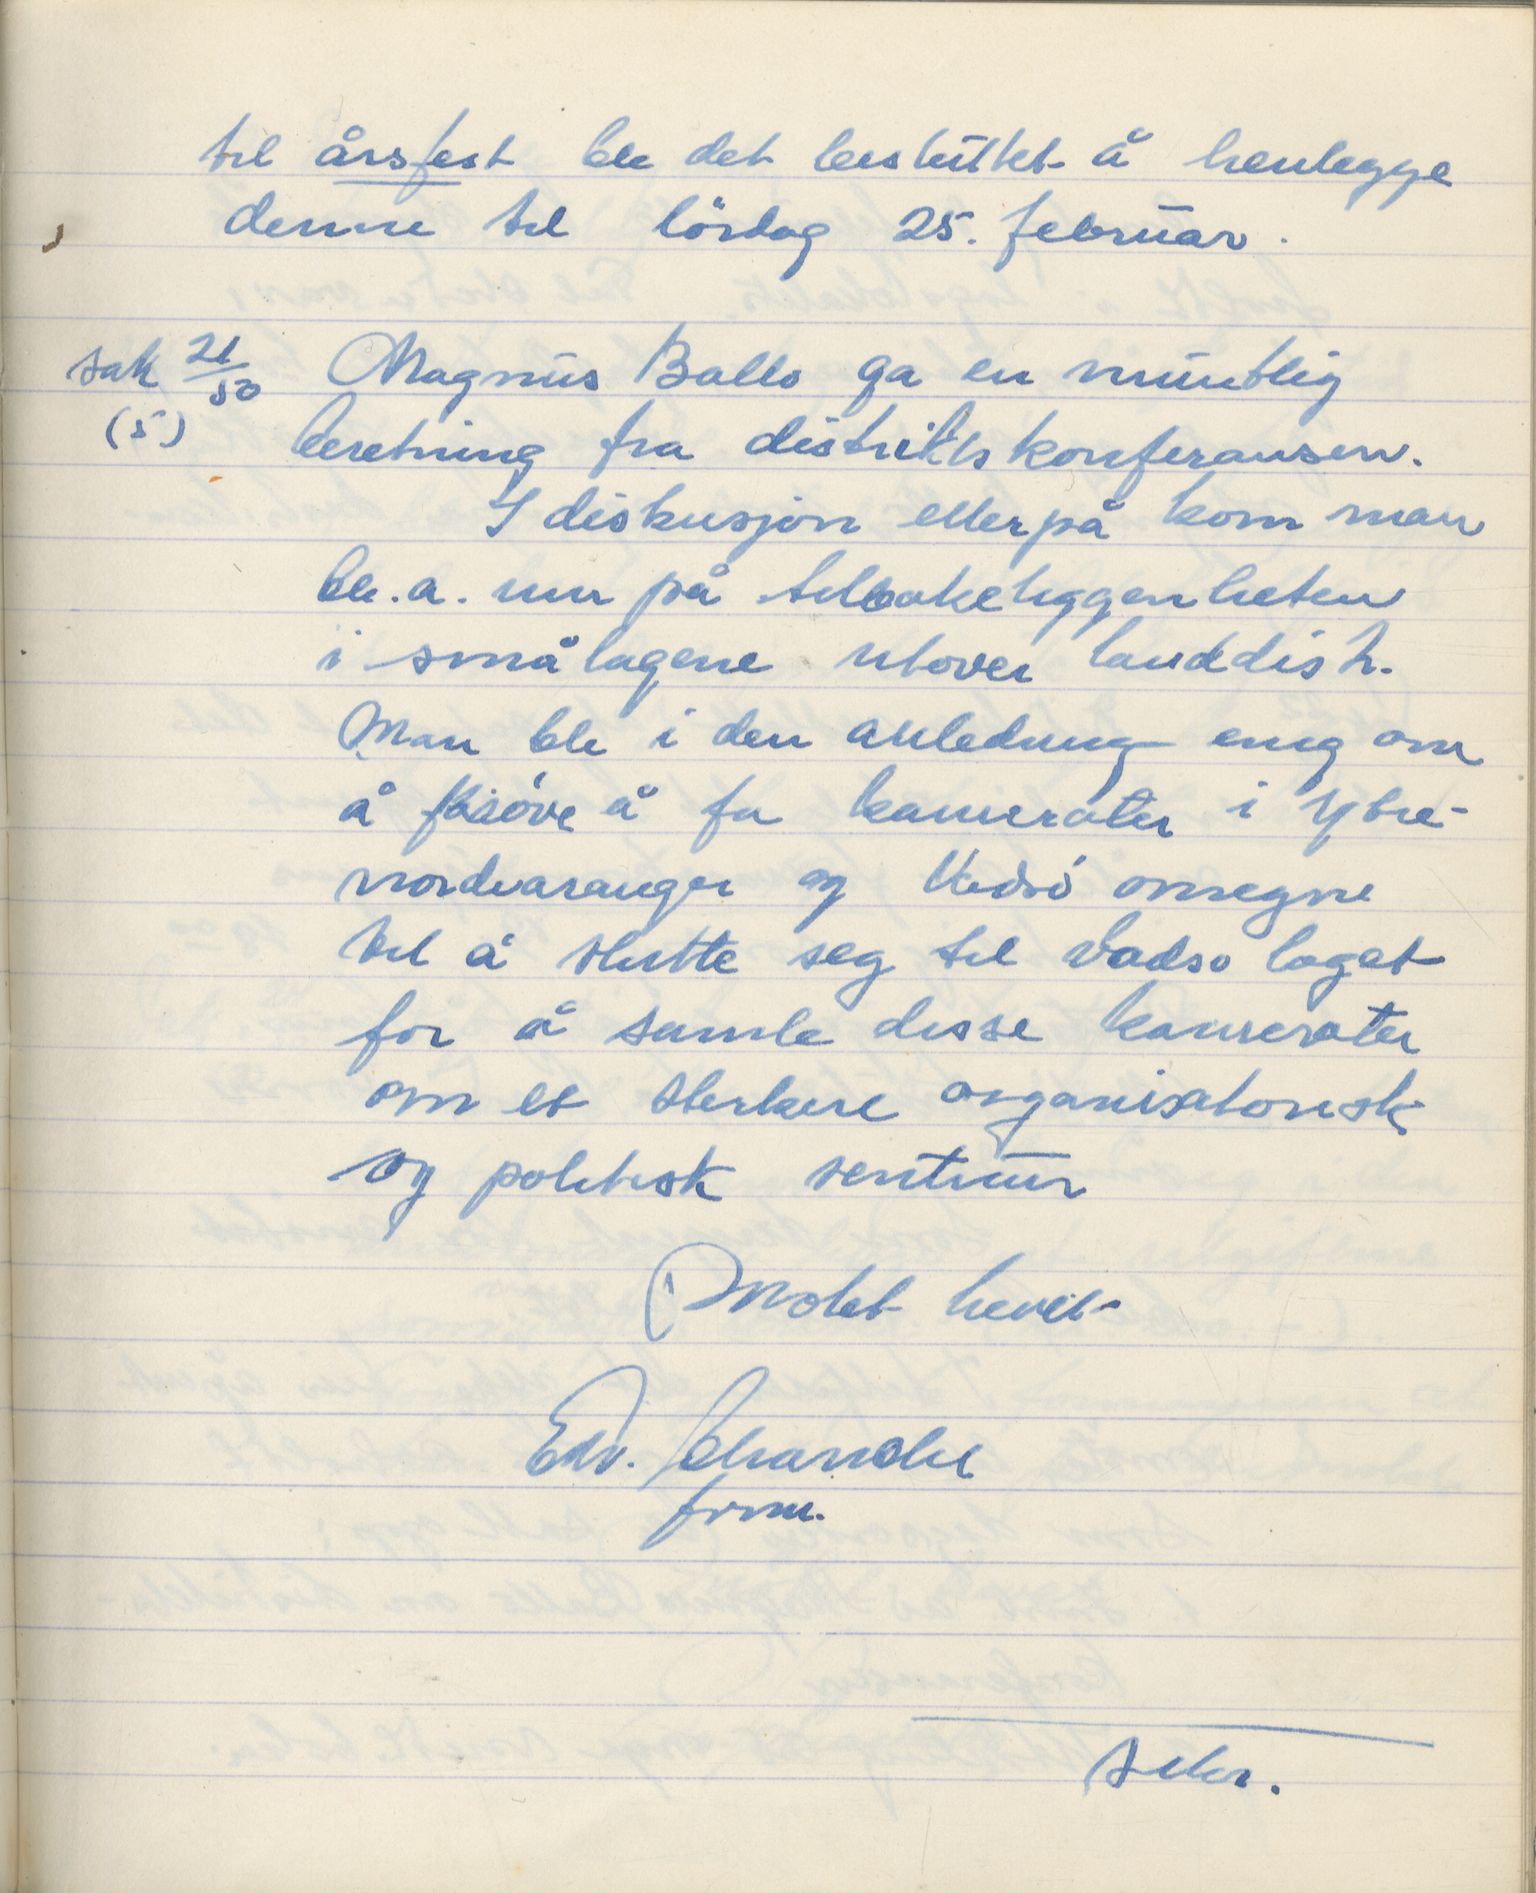 til årsfest ble det besluttet å henlegge
denne til lördag 25. februar.
sak 21/50 Magnus Ballo ga en muntlig
(5) beretning fra distriktskonferansen.
I diskusjon etterpå kom man
bl.a. inn på tilbakeliggenheten
i smålagene utover landdistr.
Man ble i den anledning enig om
å pröve å få kamerater i Ytre-
nordvaranger og Vadsö omegne
til å slutte seg til Vadsö laget
for å samle disse kamerater
om et sterkere organisatorisk
og politisk sentrum
Mötet hevet
Edv.
form.
sekr.